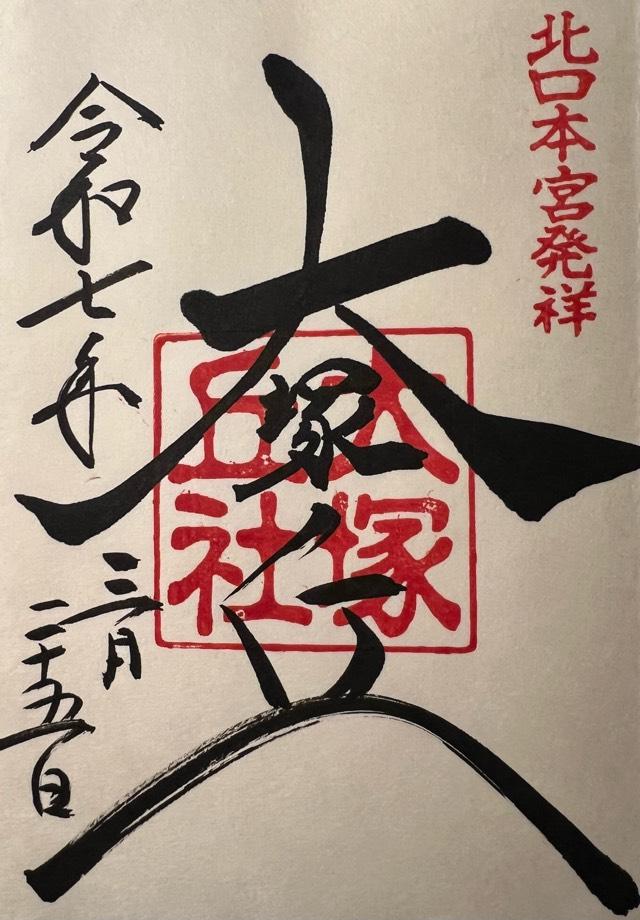 北口本宮発祥
大塚丘
大塚
丘社
令和七年
三月
二十五日